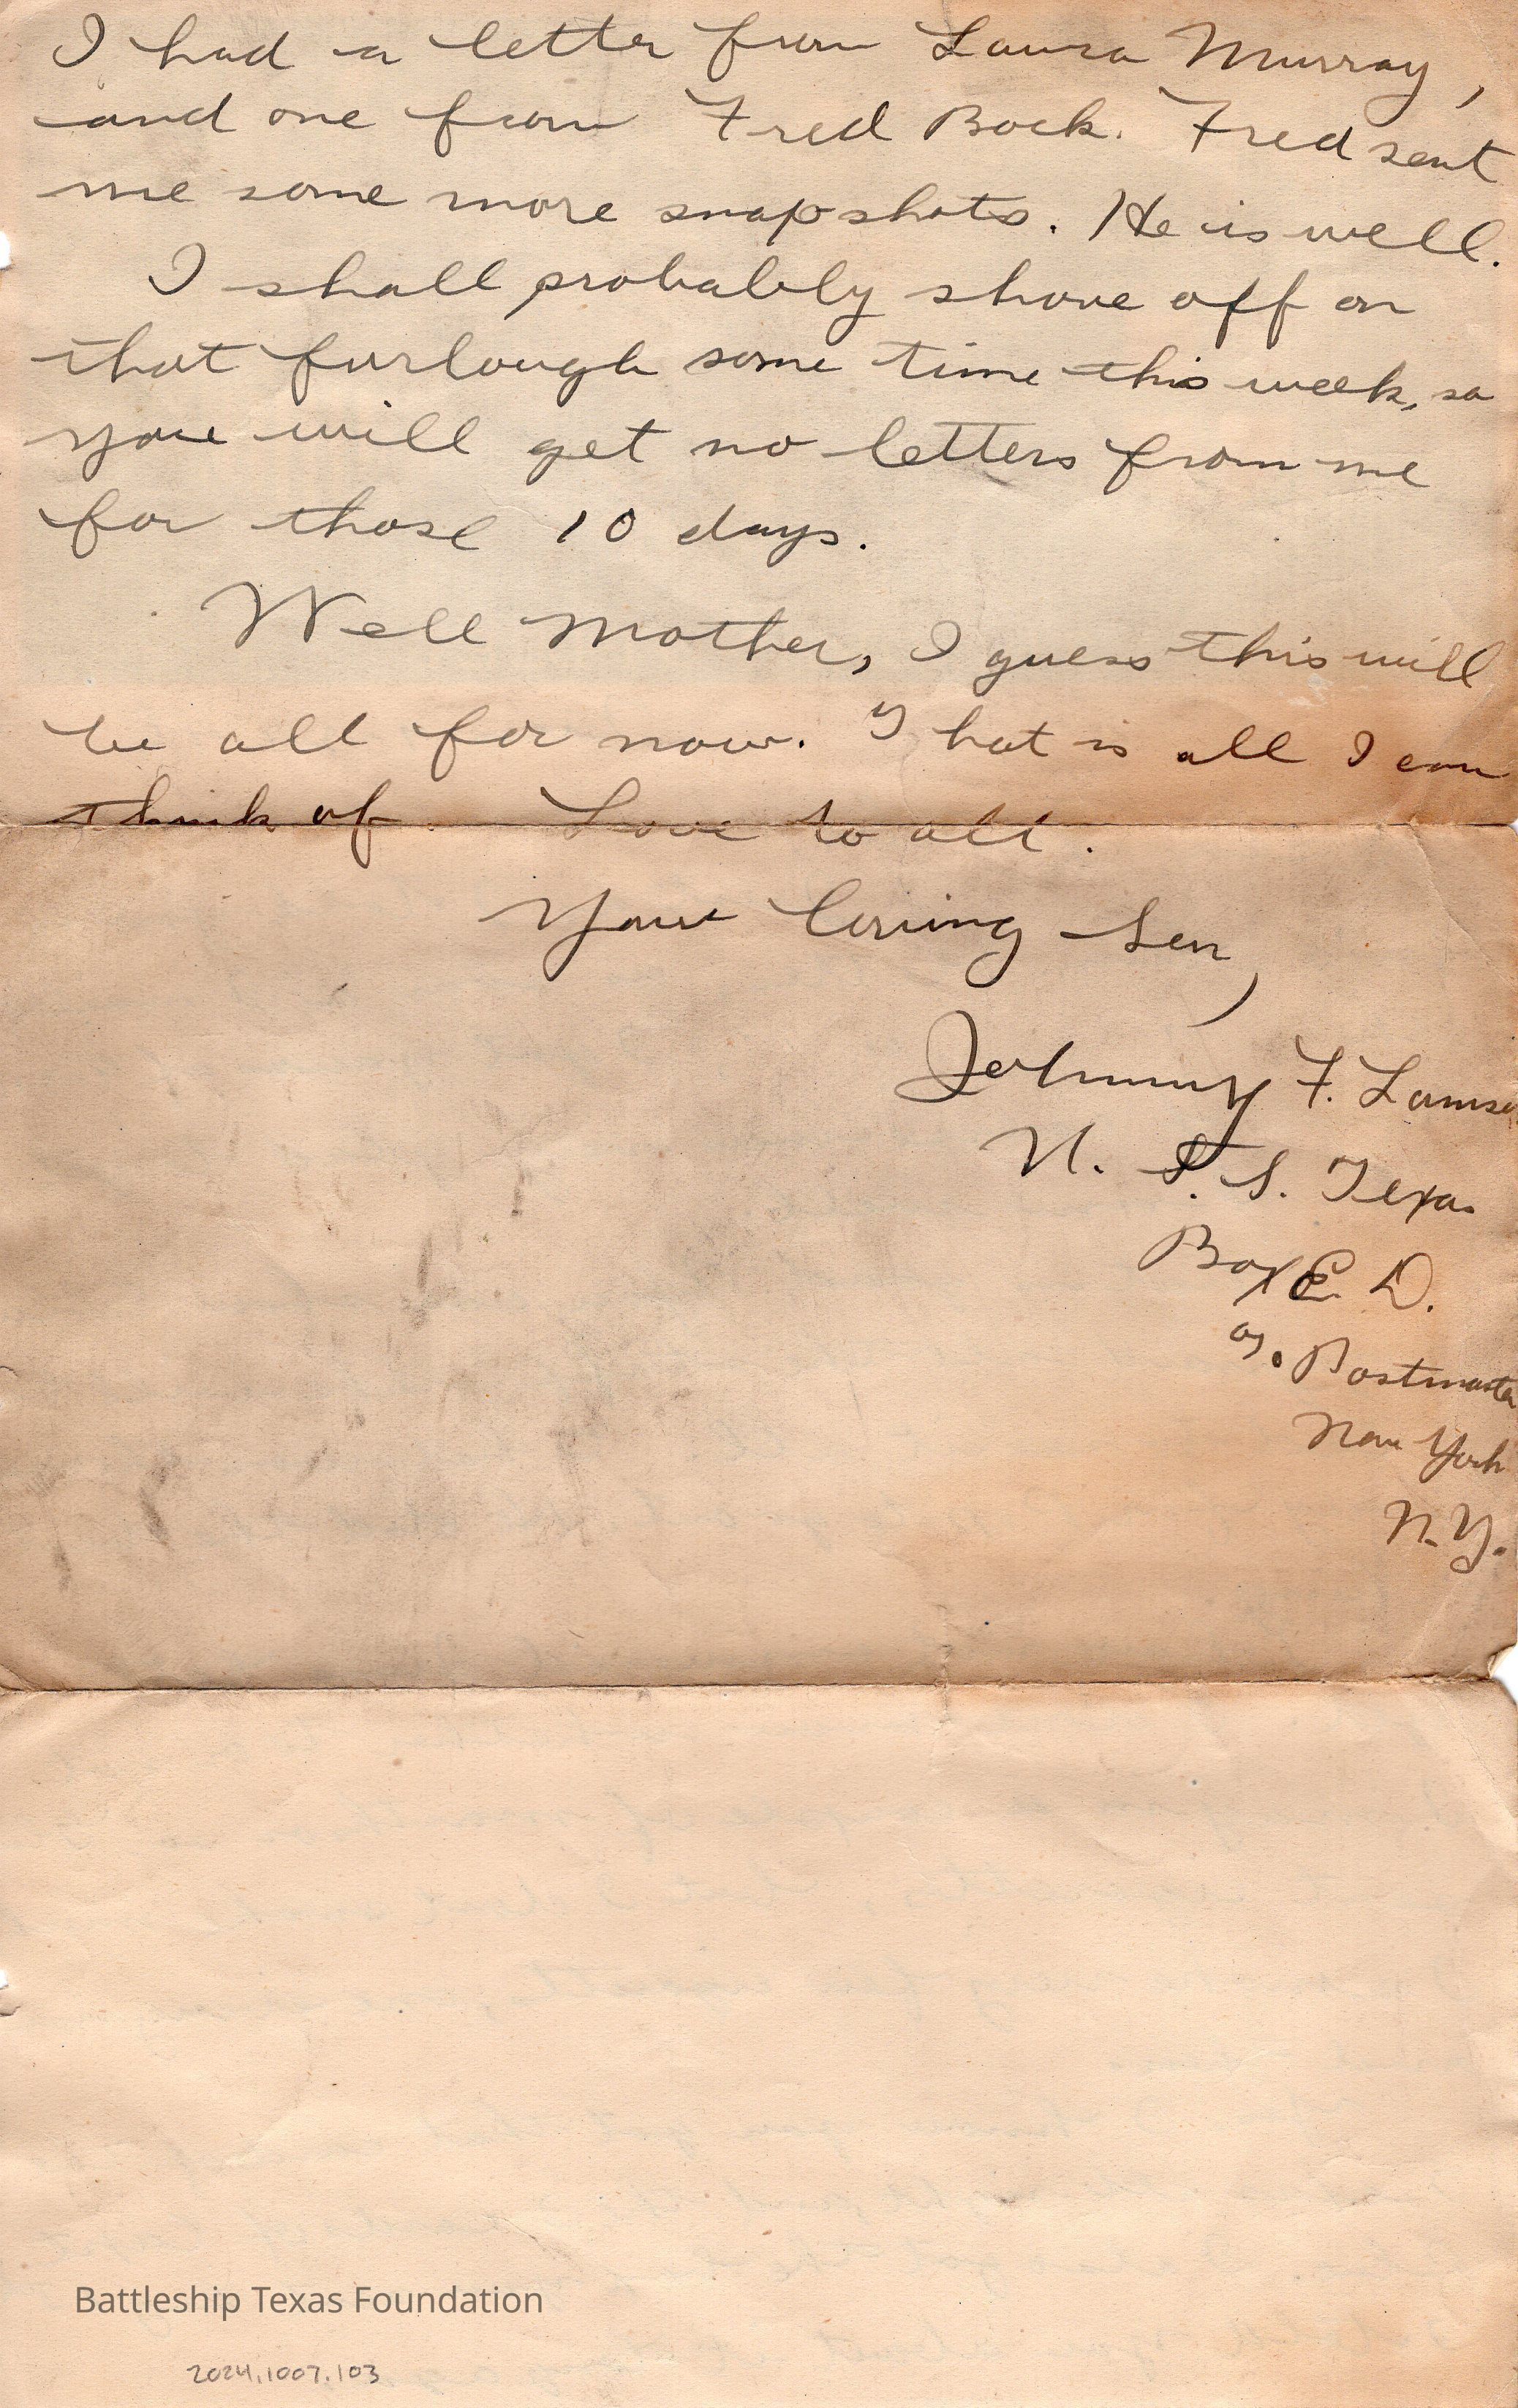 I had a letter from Laura Murray,
and one from Fred Bock. Fred sent
me some more snapshots. He is well.
I shall probably shove off on
that furlough some time this week, so
you will get no letters from me
for those 10 days.
Well Mother, I guess this will
be all for now. That is all I can
think of. Love to all.
Your loving Son,
Johnny F.
U. S. S. Texas
Box E. D.
Postmaster
New York
N.Y.
Battleship Texas Foundation
2024.1007.103